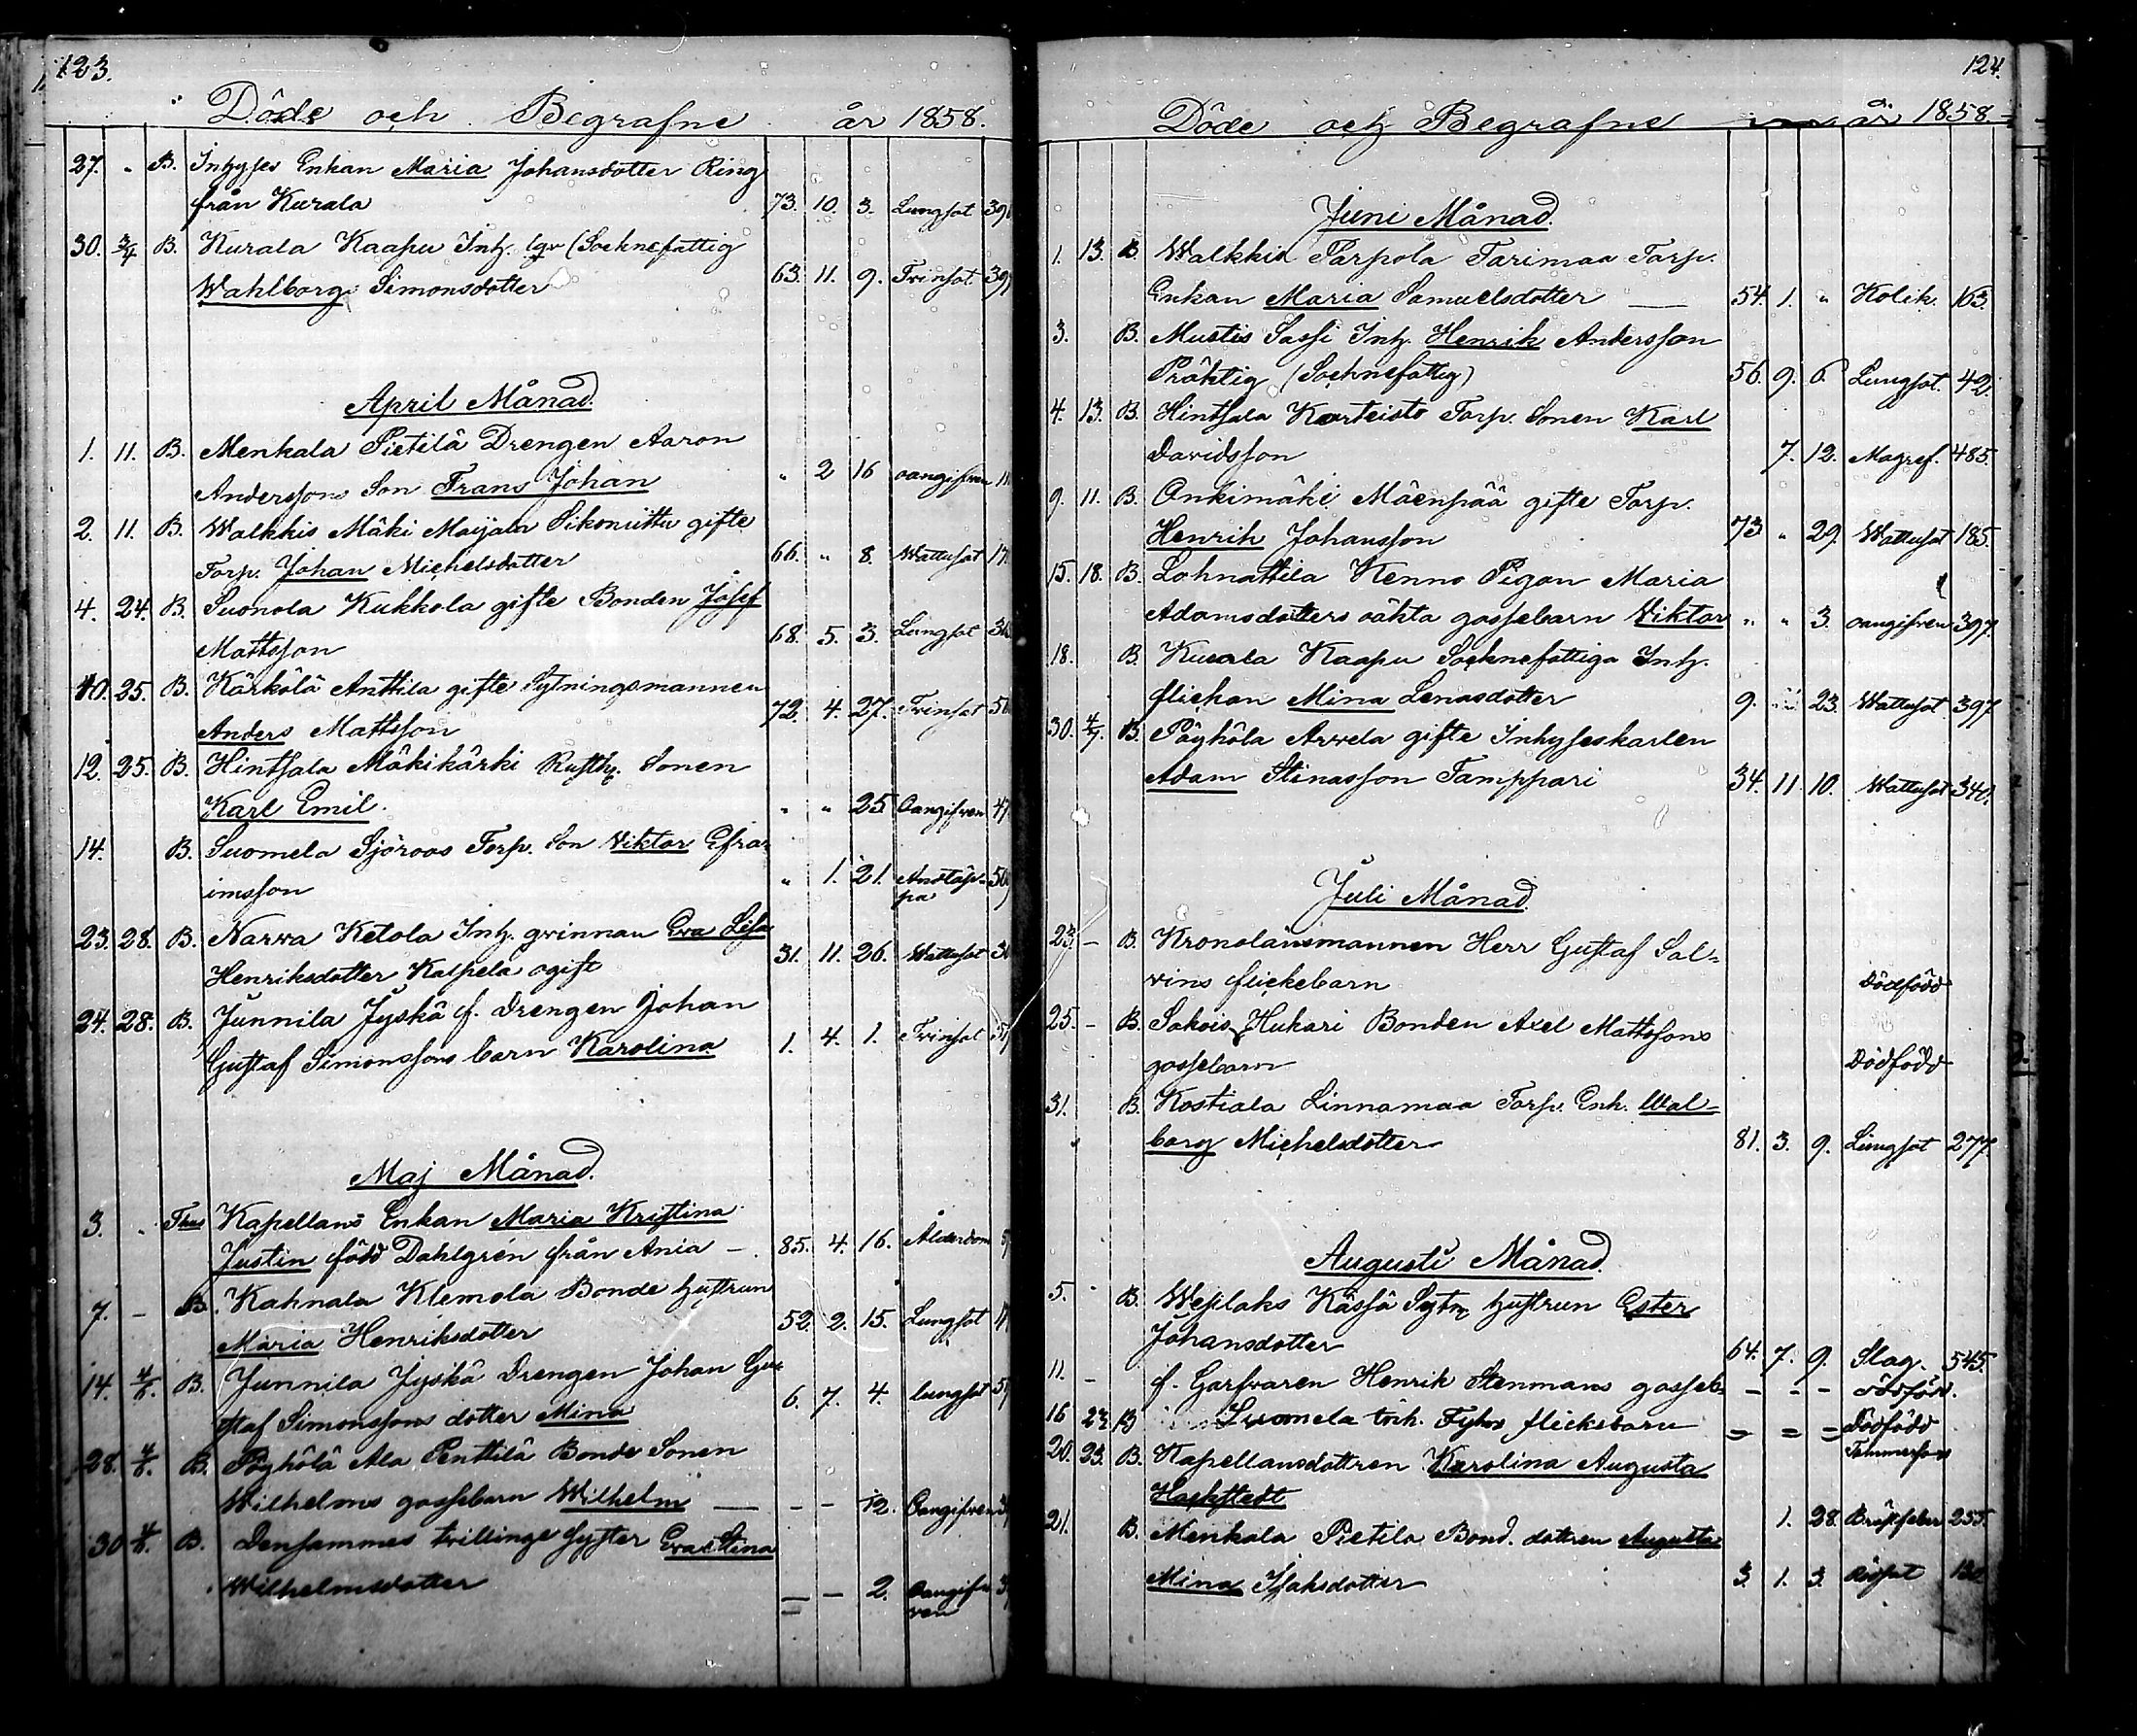 123.
Döde och Begrafne år 1858.
27. " B. Inhyses Enkan Maria Johansdotter Ring
från Kurala 73. 10. 3. Lungsot
30. 3/4 B. Kurala Kaapu Inh. (Socknefattig
Wahlborg Simonsdotter 63. 11. 9. Trinsot
April Månad.
1. 11. B. Menkala Pietilä Drengen Aaron
Anderssons Son Frans Johan " 2 16 oangifven
2. 11. B. Walkkis Mäki Maijala gifte
Torp. Johan Michelsdotter 66. " 8. Wattusot
4. 24. B. Suonola Kukkola gifte Bonden Josef
Mattsson 68. 5. 3. Lungsot
10. 25. B. Kärkölä Anttila gifte Sytningsmannen
Anders Mattsson 72. 4. 27. Trinsot
12. 25. B. Hintsala Mäkikärki Rusth. Sonen
Karl Emil. " " 25 Oangifven
14. B. Suomela Sjöroos Torp. Son Viktor Efra-
imsson " 1. 21. Andtäp-
pa
23. 28. B. Narwa Ketola Inh. qvinnan Eva Lisa
Henriksdotter Kalpela ogift 31. 11. 26. Wattusot
24. 28. B. Junnila Jyskä f. Drengen Johan
Gustaf Simonssons barn Karolina 1. 4. 1. Trinsot
Maj Månad.
3. " Kapellans Enkan Maria Kristina
Justin född Dahlgrén från Ania –. 85. 4. 16. Ålderdom
7. – B. Kahnala Klemola Bonde hustrun
Maria Henriksdotter 52. 2. 15. Lungsot
14. 4/6. B. Junnila Jyskä Drengen Johan Gu-
staf Simonssons dotter Mina 6. 7. 4. lungsot
28. 4/6. B. Pöyhölä Ala Penttilä Bonde Sonen
Wilhelms gossebarn Wilhelm — – – 12. Oangifven
30 4/6. B. Densammes tvillinge syster Eva Stina
Wilhelmsdotter — – 2. Oangif-
ven
124.
Döde och Begrafne år 1858
Juni Månad.
1. 13. B. Walkkis Parpola Tarimaa Torp.
Enkan Maria Samuelsdotter — 54. 1. " Kolik. 163.
3. B. Mustis Sassi Inh. Henrik Andersson
Präktig (Socknefattig) 56. 9. 6. Lungsot. 42.
4. 13. B. Hintsala Karteisto Torp. Sonen Karl
Davidsson 7. 12. Magref. 485.
9. 11. B. Onkimäki Mäenpää gifte Torp.
Henrik Johansson 73 " 29. Wattusot 185.
15. 18. B. Lohnattila Kenno Pigan Maria
Adamsdotters oäkta gossebarn Viktor " " 3. oangifven 397.
18. B. Kurala Kaapu Socknefattiga Inh.
flickan Mina Lenasdotter 9. " 23. Wattusot 397
30. 4/7. B. Pöyhölä Arwela gifte Inhyseskarlen
Adam Stinasson Tamppari 34. 11 10. Wattusot 340.
Juli Månad.
23. – B. Kronolänsmannen Herr Gustaf Sal-
vins flickebarn dödfödd
25. – B. Sakois Hukari Bonden Axel Mattssons
gossebarn Dödfödd
31. B. Kostiala Linnamaa Torp. Enk. Wal-
borg Michelsdotter 81. 3. 9. Lungsot 277.
Augusti Månad.
5. " B. Wesilaks Kässä Sytn. hustrun Ester
Johansdotter 64. 7. 9. Slag. 545.
11. – f. Garfvaren Henrik Stenmans gosseb. – – – dödfödd.
16 23 B Suomela inh. flickebarn = = = Dödfödd
20. 23. B. Kapellansdottren Karolina Augusta
Hackstedt 1. 28. 255.
21. B. Menkala Pietila Bond. dottren Augusta
Mina Isaksdotter 3. 1. 3. Rödsot